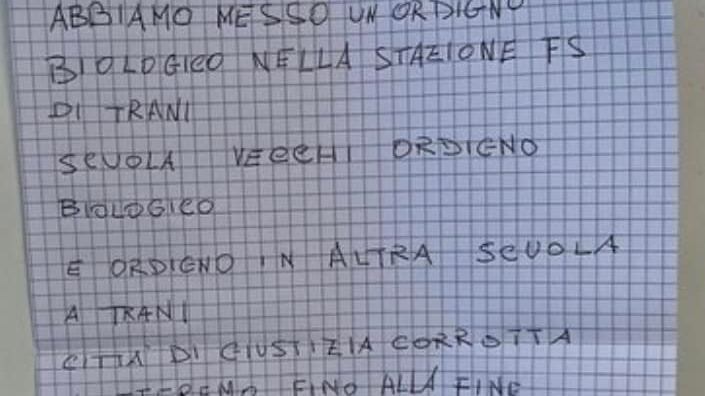 ABBIAMO MESSO UN ORDIGNO
BIOLOGICO NELLA STAZIONE FS
DI TRANI
SCUOLA VECCHI ORDIGNO
BIOLOGICO
E ORDIGNO IN ALTRA SCUOLA
A TRANI
CITTA' DI GIUSTIZIA CORROTTA
FINO ALLA FINE